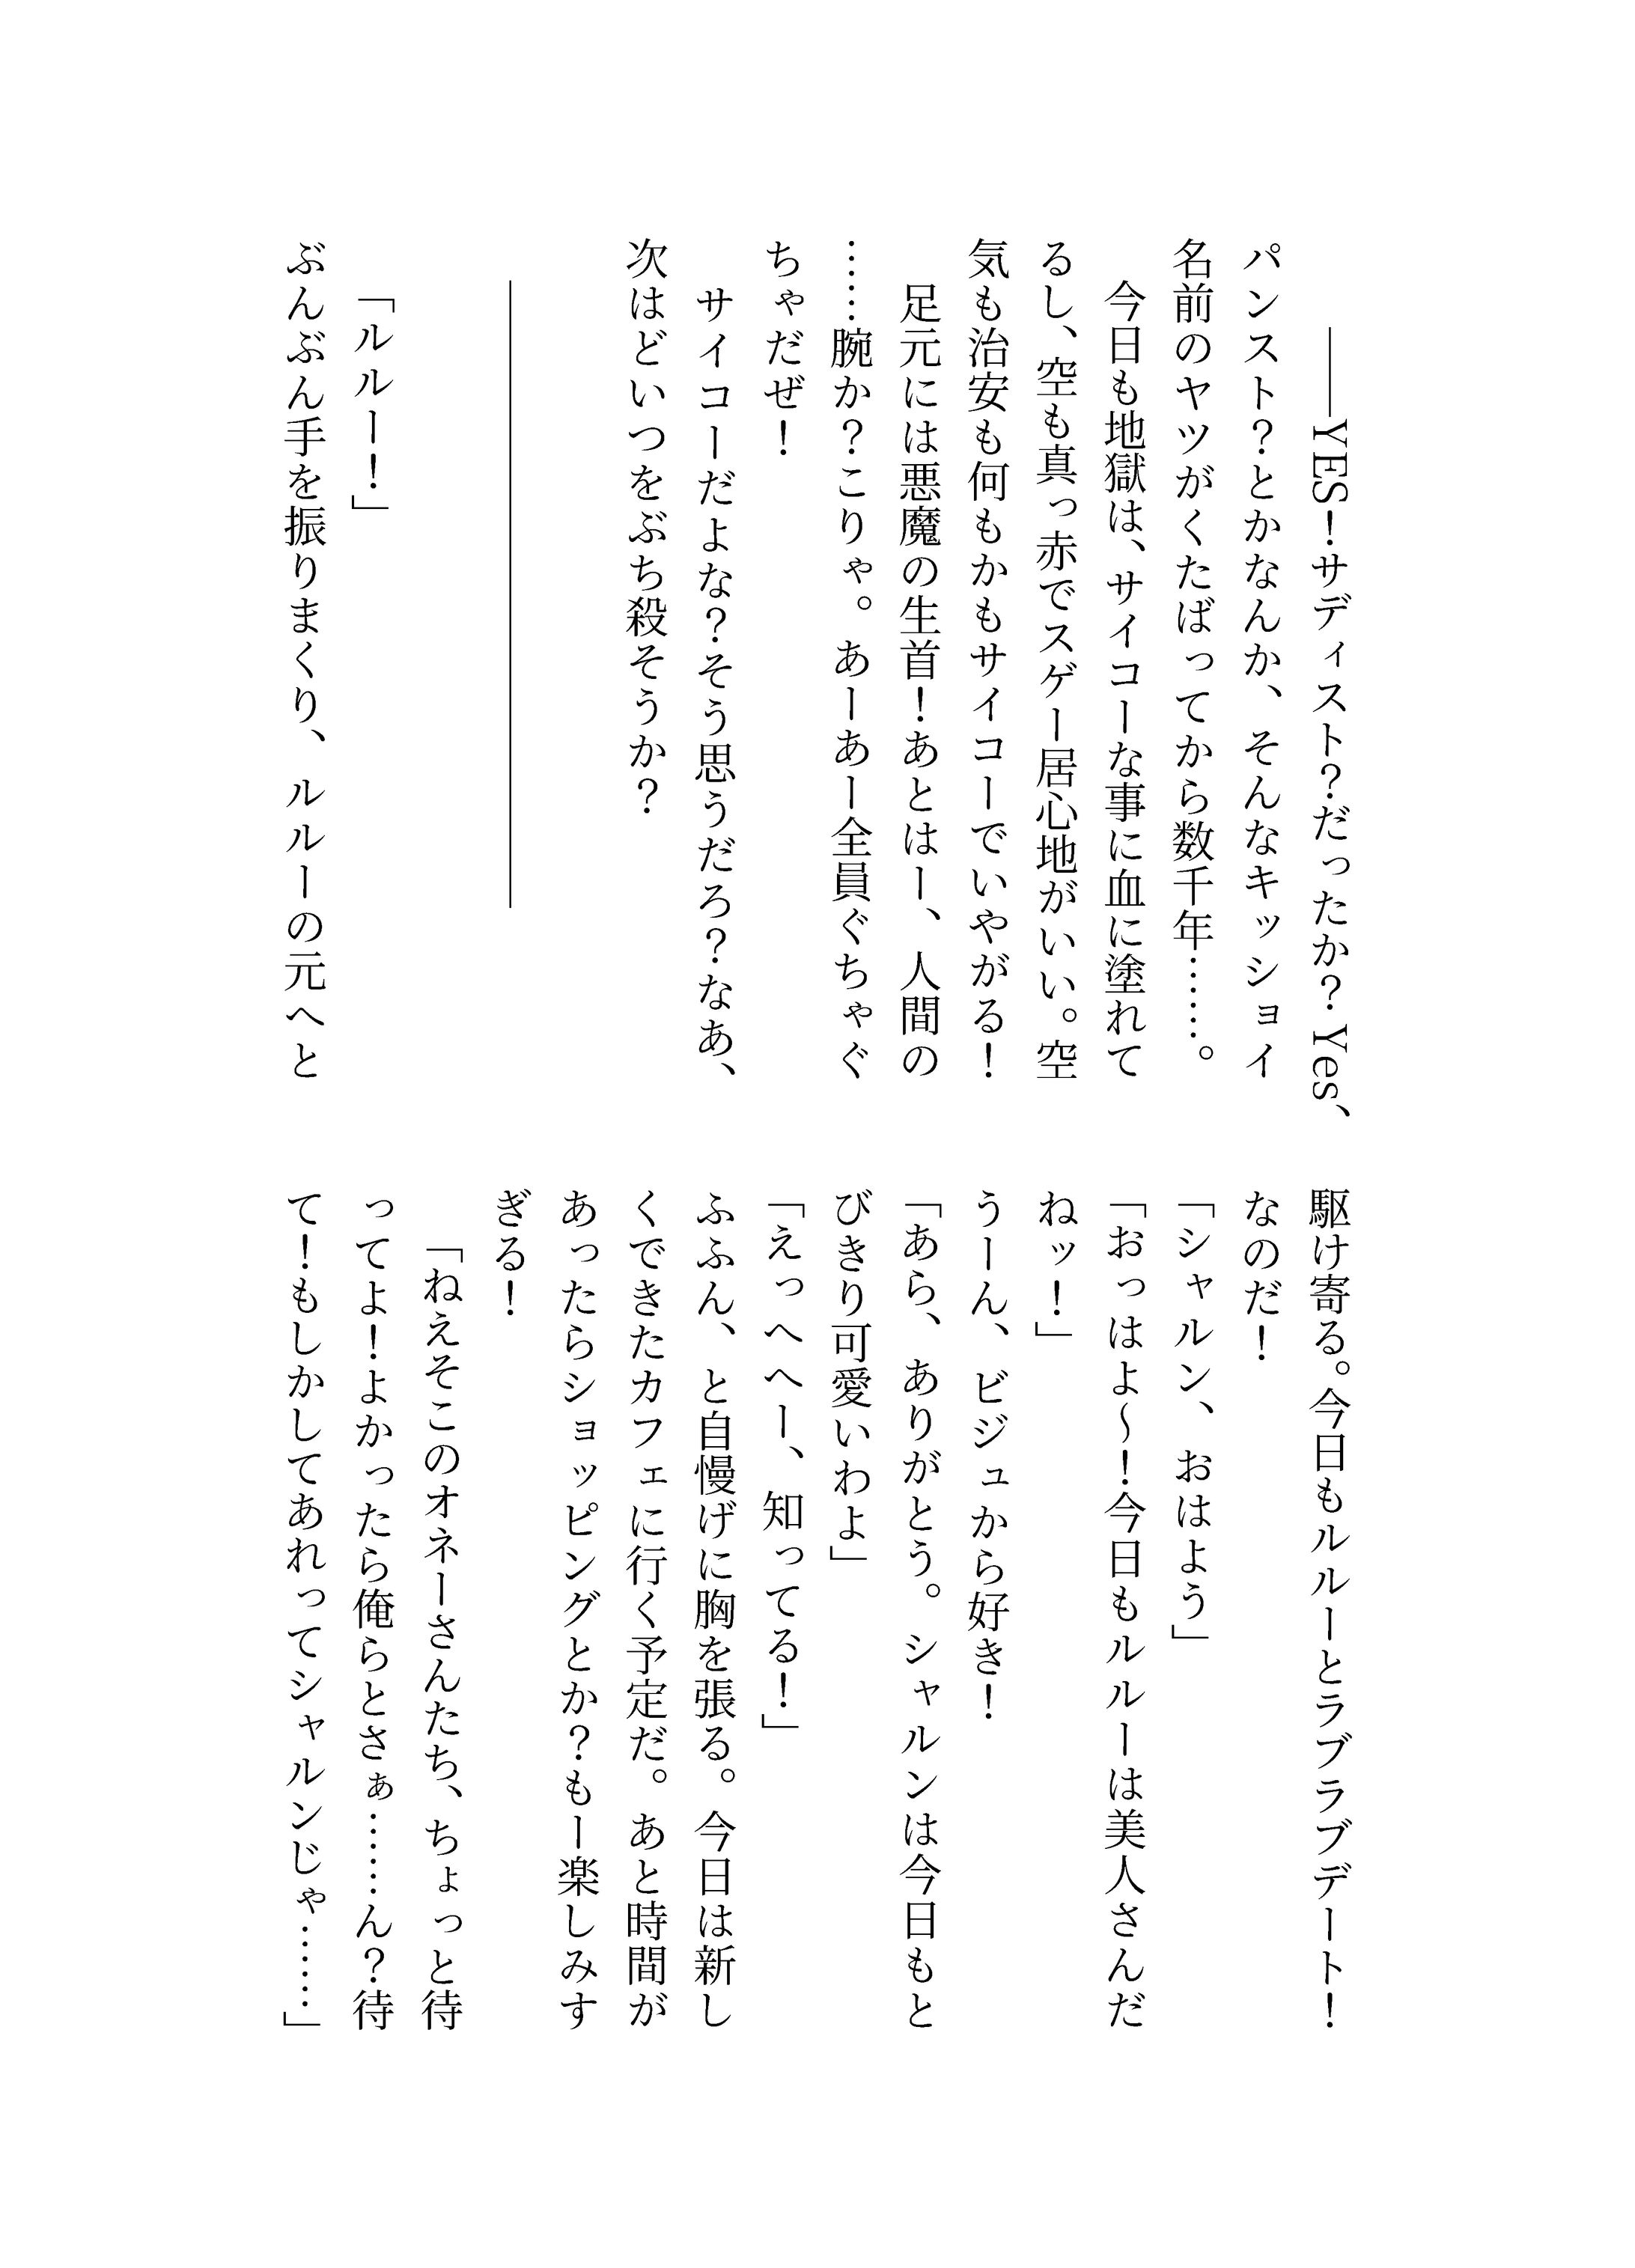 ――YES！サディスト？だったか？ Yes、
パンスト？とかなんか、そんなキッショイ
名前のヤツがくたばってから数千年……。
今日も地獄は、サイコーな事に血に塗れて
るし、空も真っ赤でスゲー居心地がいい。空
気も治安も何もかもサイコーでいやがる！
足元には悪魔の生首！あとはー、人間の
……腕か？こりゃ。あーあー全員ぐちゃぐ
ちゃだぜ！
サイコーだよな？そう思うだろ？なあ、
次はどいつをぶち殺そうか？
「ルルー！」
ぶんぶん手を振りまくり、ルルーの元へと
駆け寄る。今日もルルーとラブラブデート！
なのだ！
「シャルン、おはよう」
「おっはよ～！今日もルルーは美人さんだ
ねッ！」
うーん、ビジュから好き！
「あら、ありがとう。シャルンは今日もと
びきり可愛いわよ」
「えっへへー、知ってる！」
ふふん、と自慢げに胸を張る。今日は新し
くできたカフェに行く予定だ。あと時間が
あったらショッピングとか？もー楽しみす
ぎる！
「ねえそこのオネーさんたち、ちょっと待
ってよ！よかったら俺らとさぁ……ん？待
て！もしかしてあれってシャルンじゃ……」